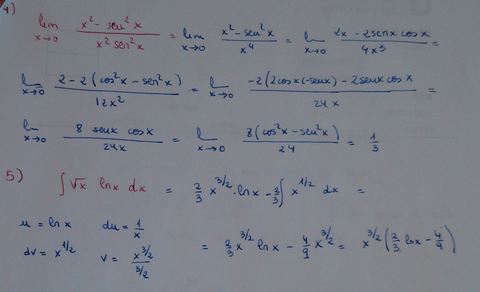 4) lim x→0 (x² - sen²x)/(x² sen²x) = lim x→0 (x² - sen²x)/x⁴ = lim x→0 (2x - 2senx cosx)/4x³ =
lim x→0 (2 - 2(cos²x - sen²x))/12x² = lim x→0 (-2(2cosx(-senx) - 2senx cosx)/24x =
lim x→0 (8 senx cosx)/24x = lim x→0 8(cos²x - sen²x)/24 = 1/3
5) ∫√x lnx dx = 2/3 x^3/2 · lnx - 2/3 ∫ x^1/2 dx =
u = lnx du = 1/x
dv = x^1/2 v = x^3/2 / 3/2
= 2/3 x^3/2 lnx - 4/9 x^3/2 = x^3/2 (2/3 lnx - 4/9)